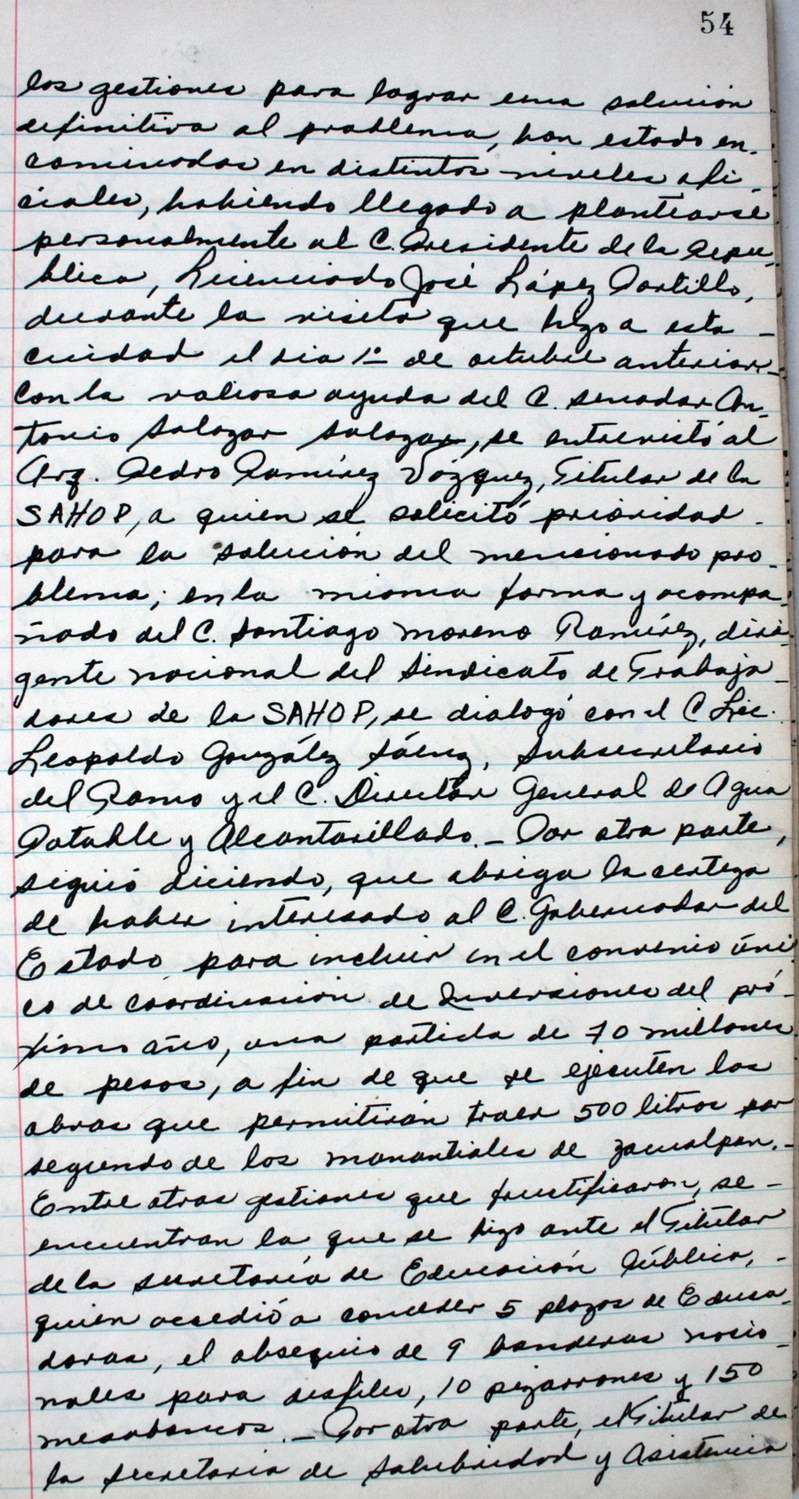 54
las gestiones para lograr una solución
definitiva al problema, han estado en-
caminadas en distintos niveles ofi-
ciales, habiendo llegado a plantearse
personalmente al C. Presidente de la Repú-
blica, Licenciado José López Portillo,
durante la visita que hizo a esta -
ciudad el dia 1º de octubre anterior -
con la valiosa ayuda del C. senador An-
tonio Salazar Salazar, se entrevistó al
Arq. Pedro Ramírez Vázquez, Titular de la
SAHOP, a quien se solicitó prioridad -
para la solución del mencionado pro-
blema; en la misma forma y acompa-
ñado del C. Santiago Moreno Ramírez, diri-
gente nacional del Sindicato de Trabaja-
dores de la SAHOP, se dialogó con el C Lic.
Leopoldo González Sáenz, Subsecretario
del Ramo y el C. Director General de Agua
Potable y Alcantarillado. - Por otra parte,
siguió diciendo, que abriga la certeza
de haber interesado al C. Gobernador del
Estado para incluir en el convenio úni-
co de coordinación de Inversiones del pró-
ximo año, una partida de 70 millones
de pesos, a fin de que se ejecuten las
obras que permitirán traer 500 litros por
segundo de los manantiales de zacualpan. -
Entre otras gestiones que fructificaron, se -
encuentran la que se hizo ante el Titular
de la secretaría de Educación Pública, -
quien accedió a conceder 5 plazas de Educa-
doras, el obsequio de 9 banderas nacio-
nales para desfiles, 10 pizarrones y 150
mesabancos. - Por otra parte, el Titular de
la secretaria de Salubridad y Asistencia